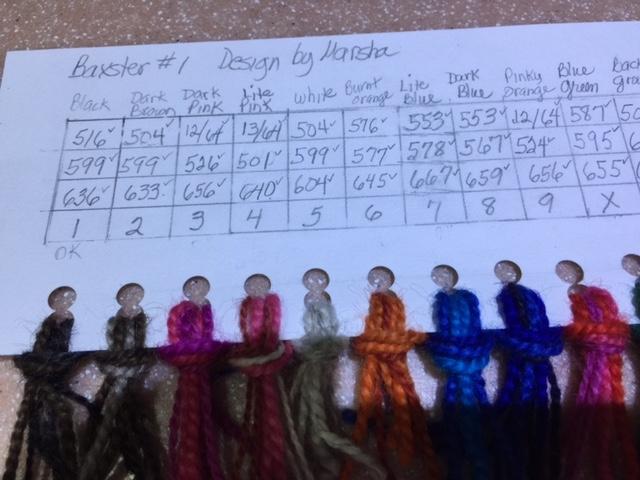 Baxster #1 Design by Marsha
Black Dark Brown Dark Pink Lite Pink White Burnt orange Lite Blue Dark Blue Pinky Orange Blue Green
516✓ 504✓ 12/64✓ 13/64✓ 504✓ 576✓ 553✓ 553✓ 12/64 587✓
599✓ 599✓ 526✓ 501✓ 599✓ 577✓ 578✓ 567✓ 524✓ 595✓
636✓ 633✓ 656✓ 640✓ 604✓ 645✓ 667✓ 659✓ 656✓ 655✓
1 2 3 4 5 6 7 8 9 X
OK